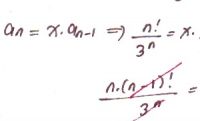 aₙ = x · aₙ₋₁ ⟹ n!/3ⁿ = x ·
n·(n-1)!/3ⁿ =